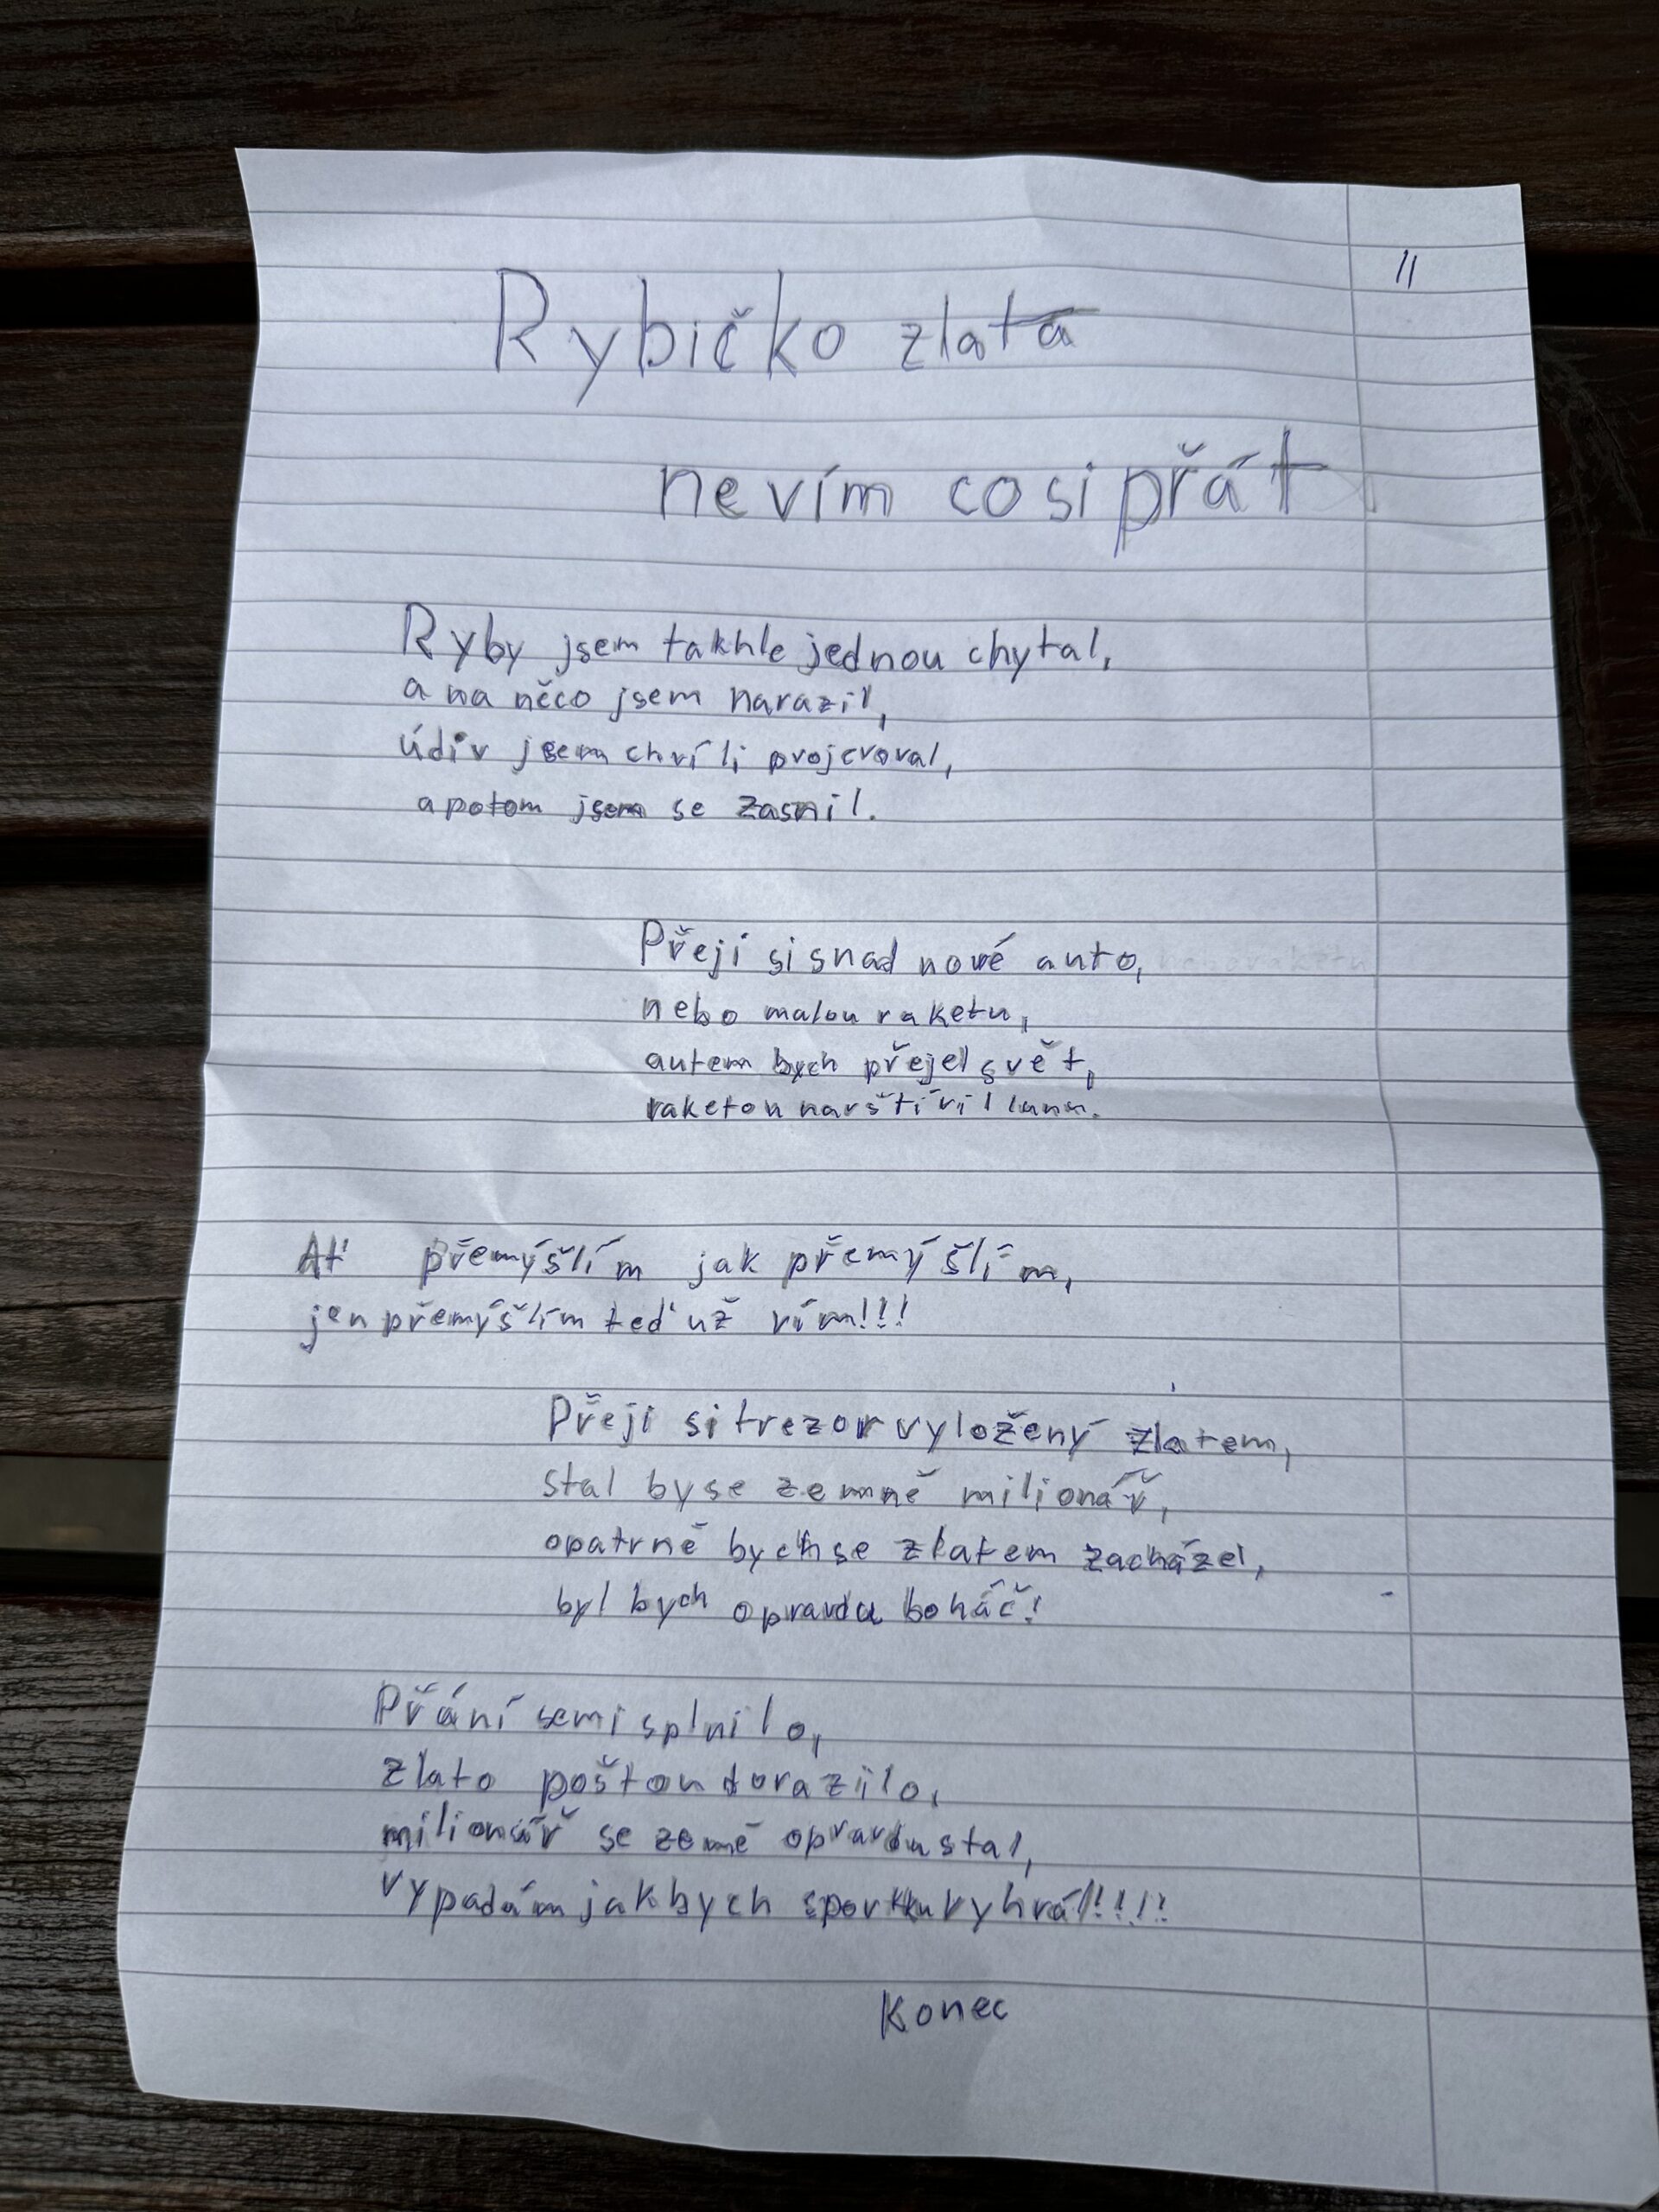 11
Rybičko zlatá
nevím co si přát
Ryby jsem takhle jednou chytal,
a na něco jsem narazil,
údiv jsem chvíli projevoval,
a potom jsem se zasnil.
Přeji si snad nové auto,
nebo malou raketu,
autem bych přejel svět,
raketou navštívil lunu.
Ať přemýšlím jak přemýšlím,
jen přemýšlím teď už vím!!!
Přeji si trezor vyložený zlatem,
stal by se zemně milionář,
opatrně bych se zlatem zacházel,
byl bych opravdu boháč!
Přání se mi splnilo,
zlato poštou dorazilo,
milionář se země opravdu stal,
vypadám jak bych sportku vyhrál!!!!!
Konec